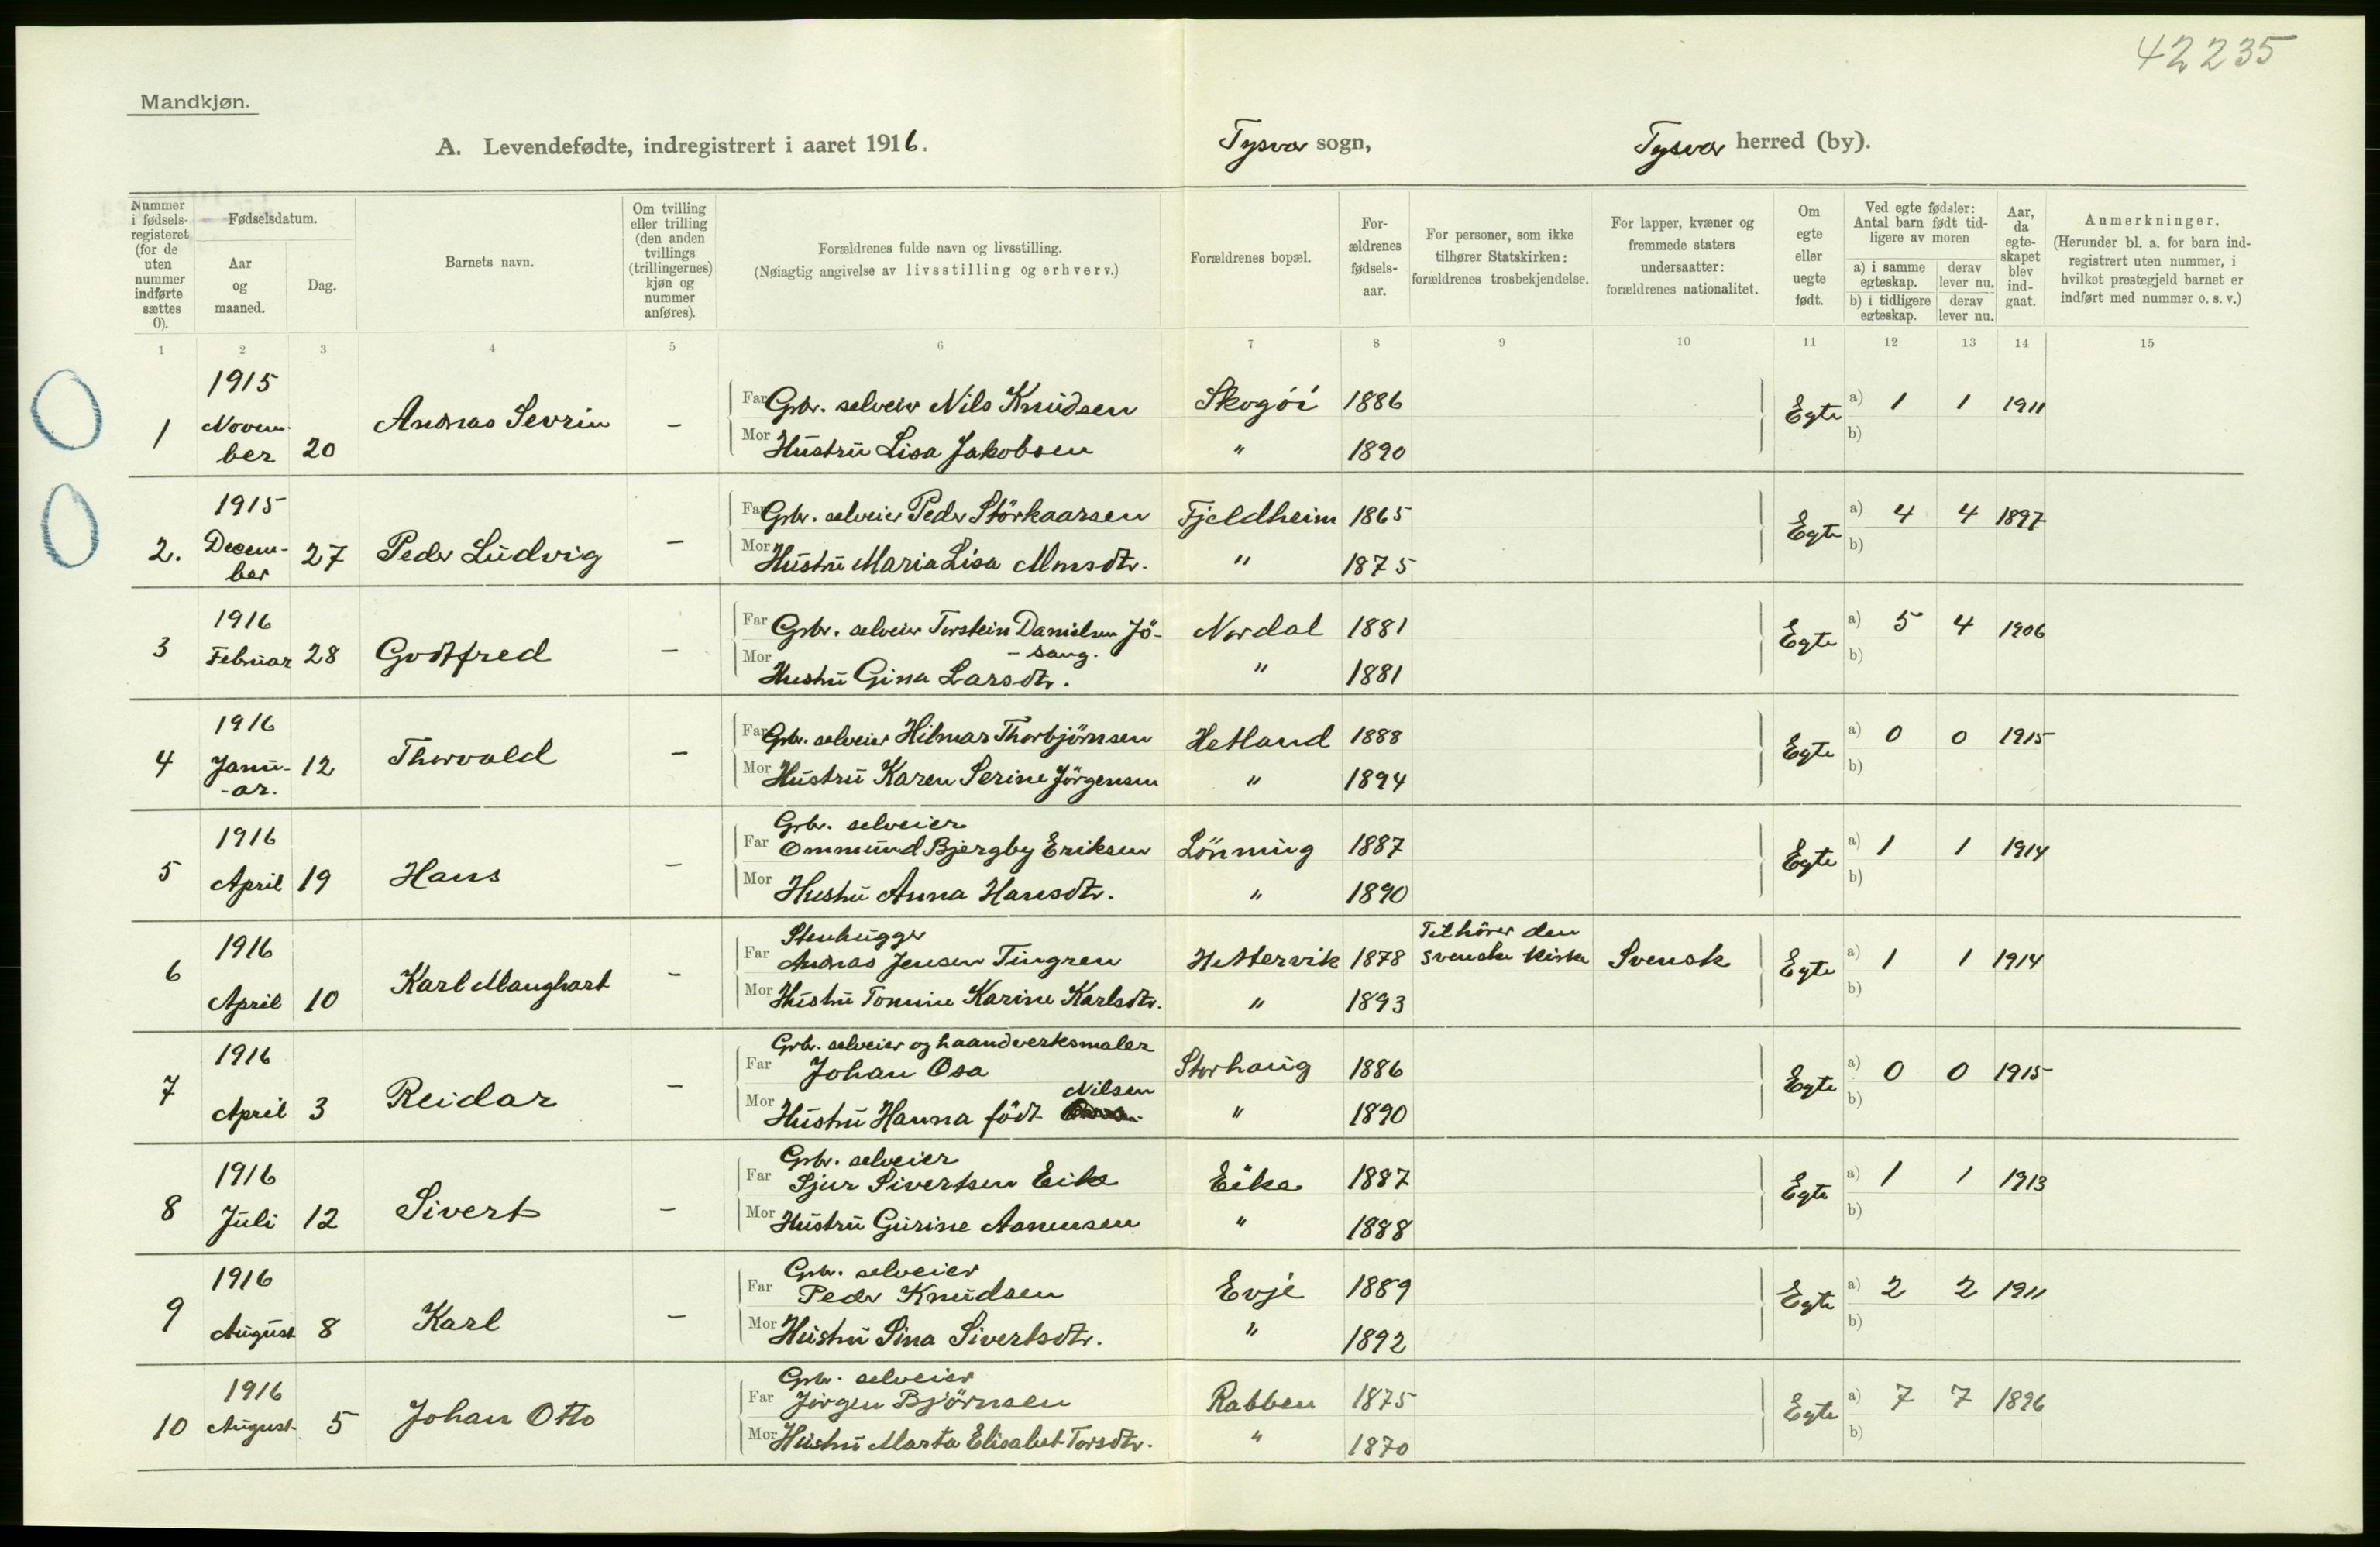 42235
Mandkjøn.
A. Levendefødte, indregistrert i aaret 1916. Tysvær sogn, Tysvær herred (by).
Nummer i fødselsregisteret (for de uten nummer indførte sættes 0).
Fødselsdatum.
Aar og maaned.
Dag.
Barnets navn.
Om tvilling eller trilling (den anden tvillings (trillingernes) kjøn og nummer anføres).
Forældrenes fulde navn og livsstilling.
(Nøiagtig angivelse av livsstilling og erhverv.)
Forældrenes bopæl.
Forældrenes fødselsaar.
For personer, som ikke tilhører Statskirken: forældrenes trosbekjendelse.
For lapper, kvæner og fremmede staters undersaatter: forældrenes nationalitet.
Om egte eller uegte født.
Ved egte fødsler: Antal barn født tidligere av moren
a) i samme egteskap. derav lever nu.
b) i tidligere egteskap. derav lever nu.
Aar, da egteskapet blev indgaat.
Anmerkninger.
(Herunder bl. a. for barn indregistrert uten nummer, i hvilket prestegjeld barnet er indført med nummer o. s. v.)
1 2 3 4 5 6 7 8 9 10 11 12 13 14 15
1 1915 November 20 Andreas Sevrin - Far Grbr. selveier Nils Knudsen Skogöi 1886 Egte a) 1 1 1911
Mor Hustru Lisa Jakobsen " 1890 b)
2. 1915 December 27 Peder Ludvig - Far Grbr. selveier Peder Störkaarsen Fjeldheim 1865 Egte a) 4 4 1897
Mor Hustru Maria Lisa " 1875 b)
3 1916 Februar 28 Godtfred - Far Grbr. selveier Torstein Danielsen Jö-
-sang. Nordal 1881 Egte a) 5 4 1906
Mor Hustru Gina Larsdtr. " 1881 b)
4 1916 Janu-
-ar. 12 Thorvald - Far Grbr. selveier Hilmar Thorbjörnsen Hetland 1888 Egte a) 0 0 1915
Mor Hustru Karen Serine Jörgensen " 1894 b)
5 1916 April 19 Hans - Grbr. selveier
Far Ommund Bjergby Eriksen Lönning 1887 Egte a) 1 1 1914
Mor Hustru Anna Hansdtr. " 1890 b)
6 1916 April 10 Karl Manghart - Stenhugger
Far Andreas Jensen Tingren Hettervik 1878 Tilhörer den svenske kirke Svensk Egte a) 1 1 1914
Mor Hustru Tomine Karine Karlsdtr. " 1893 b)
7 1916 April 3 Reidar - Grbr. selveier og haandverksmaler
Far Johan Osa Storhaug 1886 Egte a) 0 0 1915
Mor Hustru Hanna födt Nilsen " 1890 b)
8 1916 Juli 12 Sivert - Grbr. selveier
Far Sjur Sivertsen Eike Eike 1887 Egte a) 1 1 1913
Mor Hustru Gurine Aanensen " 1888 b)
9 1916 August 8 Karl - Grbr. selveier
Far Peder Knudsen Evje 1889 Egte a) 2 2 1911
Mor Hustru Sina Sivertsdtr. " 1892 b)
10 1916 August 5 Johan Otto Grbr. selveier
Far Jörgen Björnsen Rabben 1875 Egte a) 7 7 1896
Mor Hustru Marta Elisabet Torsdtr. " 1870 b)